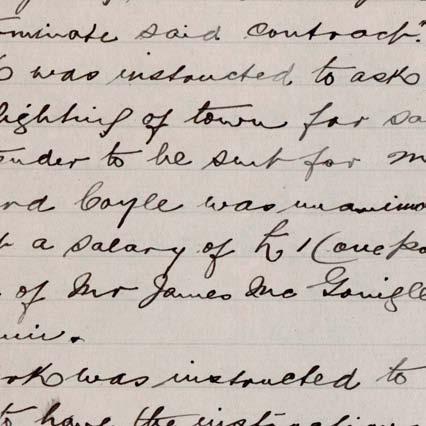 rminate said contract.
was instructed to ask
lighting of town for sa
ender to be sent for m
rd Coyle was unanimo
t a salary of £1 (one po
of Mr James Mc Gonigle
rk was instructed to
to have the instructions